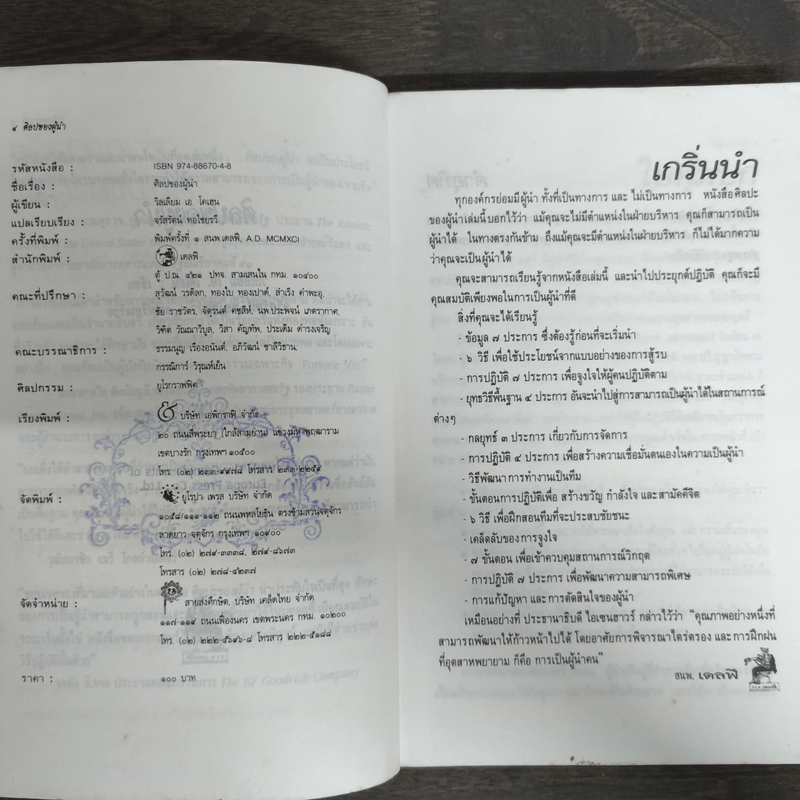 ๔ ศิลปของผู้นำ
รหัสหนังสือ : ISBN 974-88670-4-8
ชื่อเรื่อง : ศิลปของผู้นำ
ผู้เขียน : วิลเลียม เอ. โคเฮน
แปลเรียบเรียง : จรัสรัตน์ ทอไชยรวี
ครั้งที่พิมพ์ : พิมพ์ครั้งที่ ๑ สนพ.เดลฟี, A.D. MCMXCI
สำนักพิมพ์ : เดลฟี
ตู้ ป.ณ. ๔๒๑ ปทจ. สามเสนใน กทม. ๑๐๔๐๐
คณะที่ปรึกษา : สุวัฒน์ วรดิลก, ทองใบ ทองเปาด์, สำเริง คำพะอุ,
ชัย ราชวัตร, จัตุรนต์ คชสีห์, นพ.ประพจน์ เภตรากาศ,
วิฑิต วัณณาวิบูล, วิสา คัญทัพ, ประเดิม ดำรงเจริญ
คณะบรรณาธิการ : ธรรมนูญ เรืองอนันต์, อภิวัฒน์ ชาลีวิชาน,
กรรณิการ์ วิรุณห์เย็น
ศิลปกรรม : ยูโรกราฟฟิค
เรียงพิมพ์ : บริษัท เอพิกราฟิ จำกัด
๒๐ ถนนสี่พระยา (ใกล้สามย่าน) แขวงมหาพฤฒาราม
เขตบางรัก กรุงเทพฯ ๑๐๕๐๐
โทร. (๐๒) ๒๓๓-๙๙๗๘ โทรสาร ๒๓๓-๒๒๕๙
จัดพิมพ์ : ยูโรปา เพรส บริษัท จำกัด
๑๐๕๘/๑๑๑-๑๑๒ ถนนพหลโยธิน ตรงข้ามสวนจตุจักร
ลาดยาว จตุจักร กรุงเทพฯ ๑๐๙๐๐
โทร. (๐๒) ๒๗๙-๓๓๓๘, ๒๗๙-๘๖๗๓
โทรสาร (๐๒) ๒๗๘-๔๒๓๗
จัดจำหน่าย : สายส่งศึกษิต, บริษัท เคล็ดไทย จำกัด
๑๑๗-๑๑๙ ถนนเฟื่องนคร เขตพระนคร กทม. ๑๐๒๐๐
โทร. (๐๒) ๒๒๒-๕๖๙๖-๘ โทรสาร ๒๒๒-๕๑๘๘
ราคา : ๑๐๐ บาท
เกริ่นนำ
ทุกองค์กรย่อมมีผู้นำ ทั้งที่เป็นทางการ และ ไม่เป็นทางการ หนังสือศิลปะ
ของผู้นำเล่มนี้บอกไว้ว่า แม้คุณจะไม่มีตำแหน่งในฝ่ายบริหาร คุณก็สามารถเป็น
ผู้นำได้ ในทางตรงกันข้าม ถึงแม้คุณจะมีตำแหน่งในฝ่ายบริหาร ก็ไม่ได้มากความ
ว่าคุณจะเป็นผู้นำได้
คุณจะสามารถเรียนรู้จากหนังสือเล่มนี้ และนำไปประยุกต์ปฏิบัติ คุณก็จะมี
คุณสมบัติเพียงพอในการเป็นผู้นำที่ดี
สิ่งที่คุณจะได้เรียนรู้
- ข้อมูล ๗ ประการ ซึ่งต้องรู้ก่อนที่จะเริ่มนำ
- ๖ วิธี เพื่อใช้ประโยชน์จากแบบอย่างของการสู้รบ
- การปฏิบัติ ๗ ประการ เพื่อจูงใจให้ผู้คนปฏิบัติตาม
- ยุทธวิธีพื้นฐาน ๔ ประการ อันจะนำไปสู่การสามารถเป็นผู้นำได้ในสถานการณ์
ต่างๆ
- กลยุทธ์ ๓ ประการ เกี่ยวกับการจัดการ
- การปฏิบัติ ๔ ประการ เพื่อสร้างความเชื่อมั่นตนเองในความเป็นผู้นำ
- วิธีพัฒนาการทำงานเป็นทีม
- ขั้นตอนการปฏิบัติเพื่อ สร้างขวัญ กำลังใจ และสามัคคีจิต
- ๖ วิธี เพื่อฝึกสอนทีมที่จะประสบชัยชนะ
- เคล็ดลับของการจูงใจ
- ๗ ขั้นตอน เพื่อเข้าควบคุมสถานการณ์วิกฤต
- การปฏิบัติ ๗ ประการ เพื่อพัฒนาความสามารถพิเศษ
- การแก้ปัญหา และการตัดสินใจของผู้นำ
เหมือนอย่างที่ ประธานาธิบดี ไอเซนฮาวร์ กล่าวไว้ว่า “คุณภาพอย่างหนึ่งที่
สามารถพัฒนาให้ก้าวหน้าไปได้ โดยอาศัยการพิจารณาไตร่ตรอง และการฝึกฝน
ที่อุตสาหพยายาม ก็คือ การเป็นผู้นำคน”
สนพ. เดลฟี